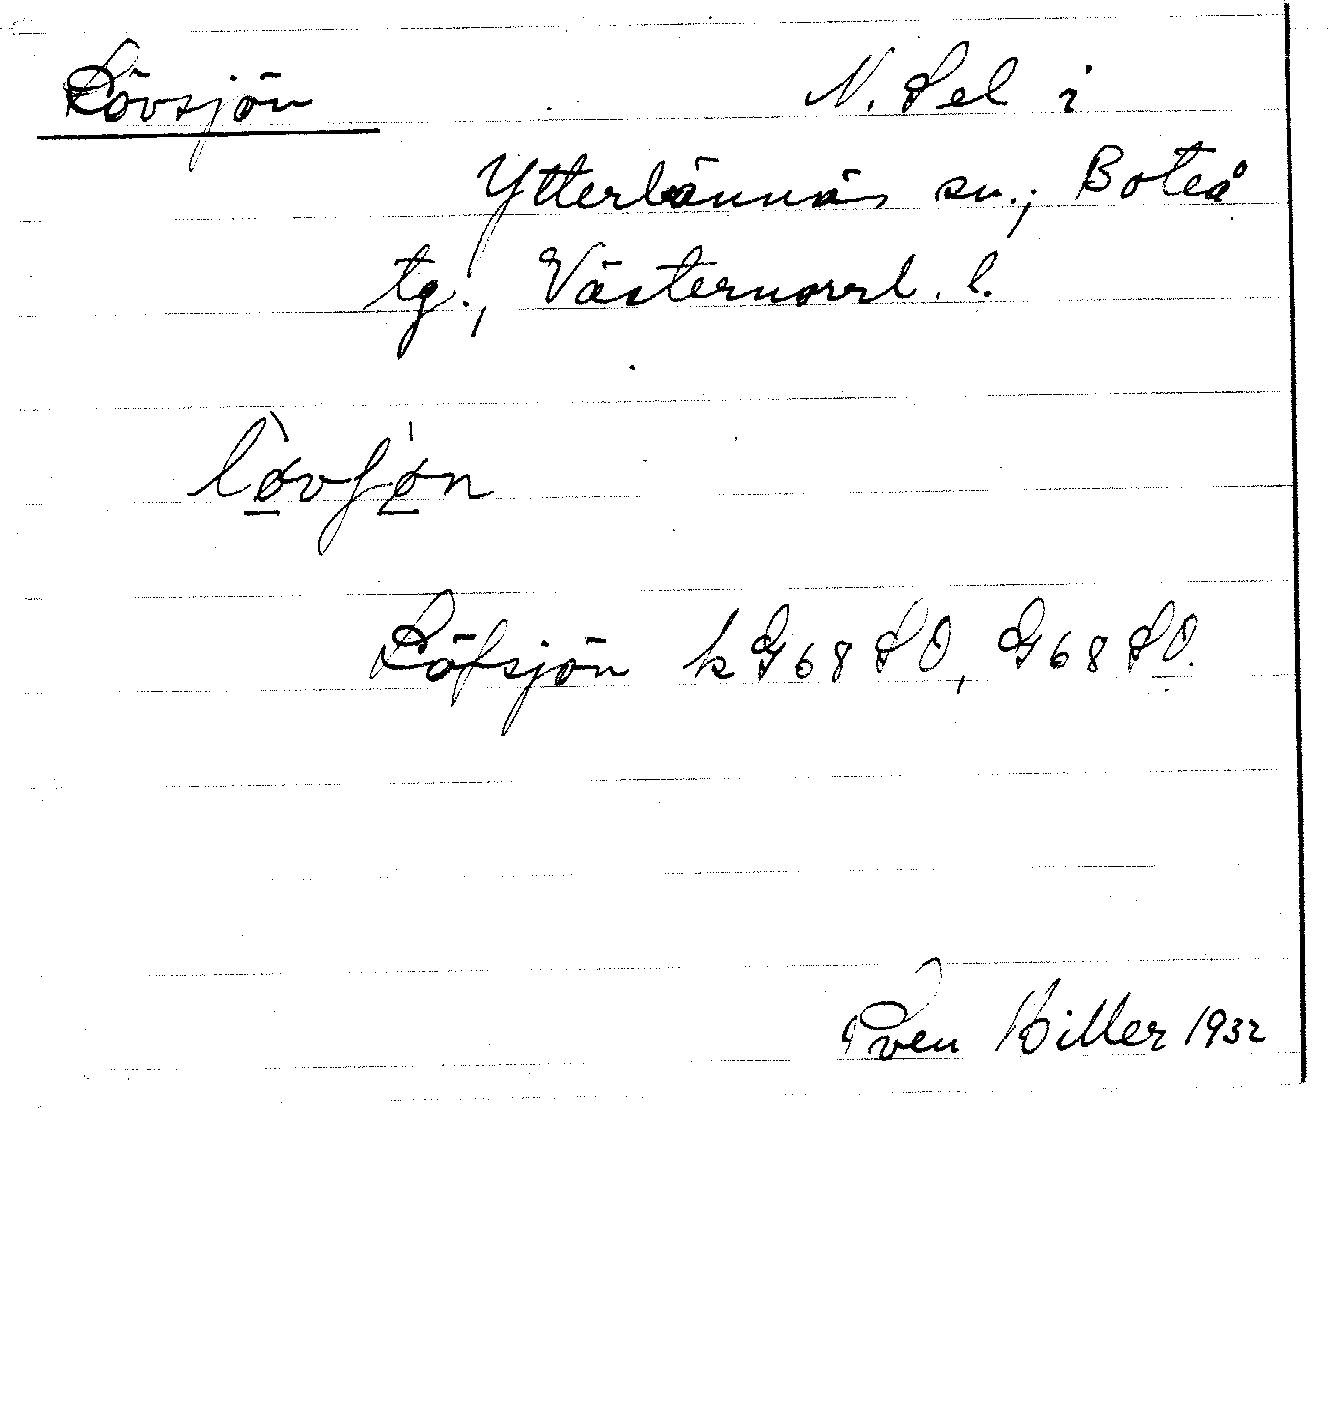 Lövsjön N. Sel i
Ytterlännäs sn., Boteå
tg., Västernorrl. l.
lø̲̀vʃǿ̲n
Löfsjön k G68SO, G68SO.
Sven Hiller 1932